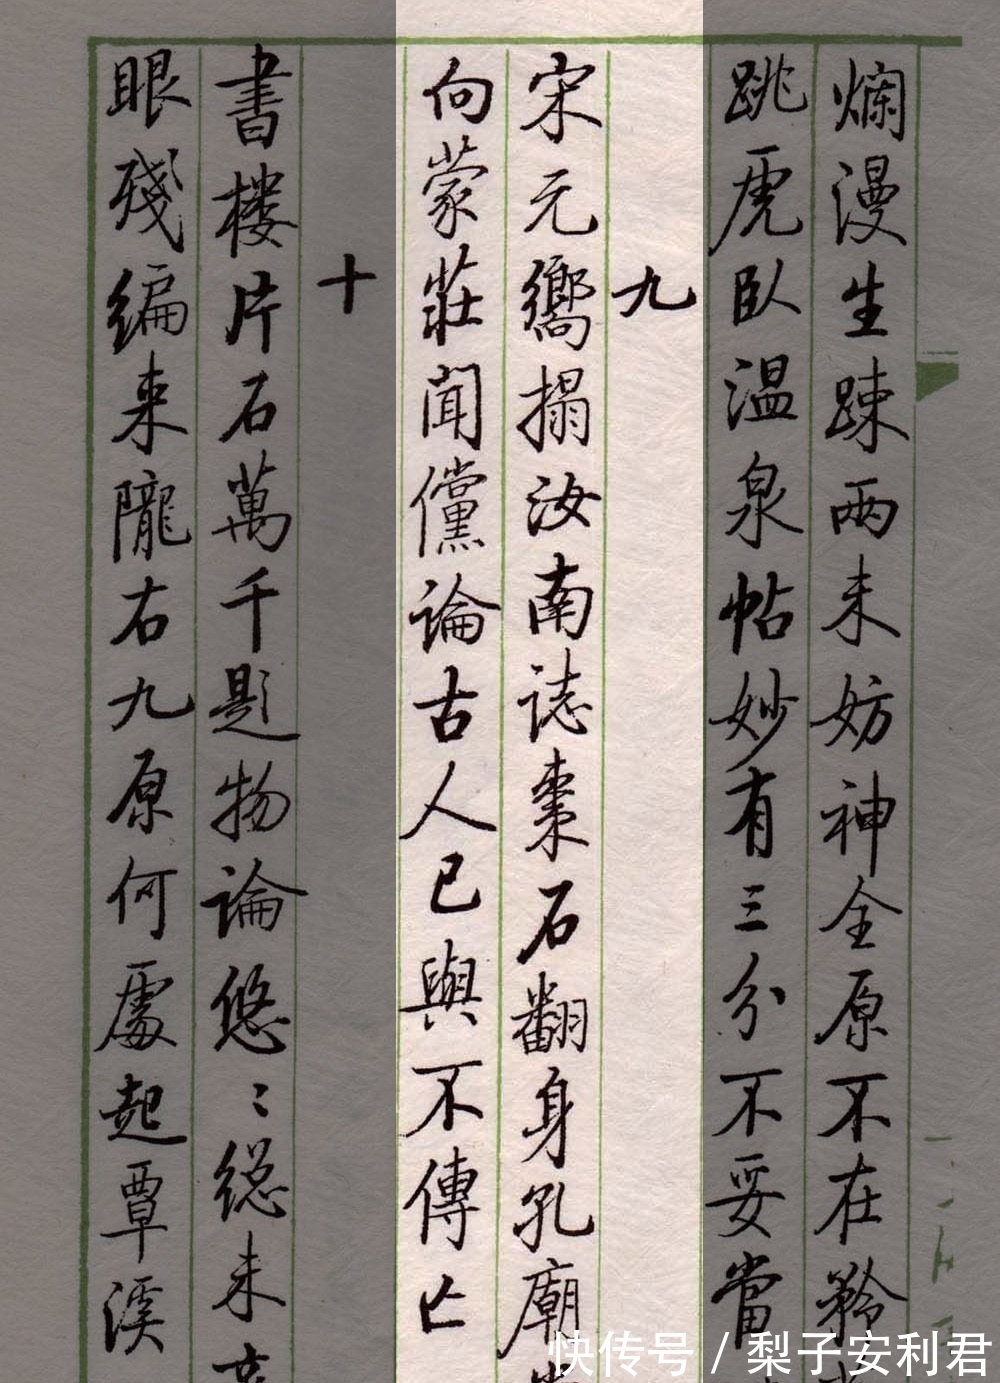 爛漫生疎兩未妨神全原不在矜
跳虎臥温泉帖妙有三分不妥當
九
宋元嚮搨汝南誌棗石翻身孔廟
向蒙莊聞儻論古人已與不傳亡
十
書楼片石萬千題物論悠〻總未
眼殘编来隴右九原何處起覃溪
快传号 / 梨子安利君